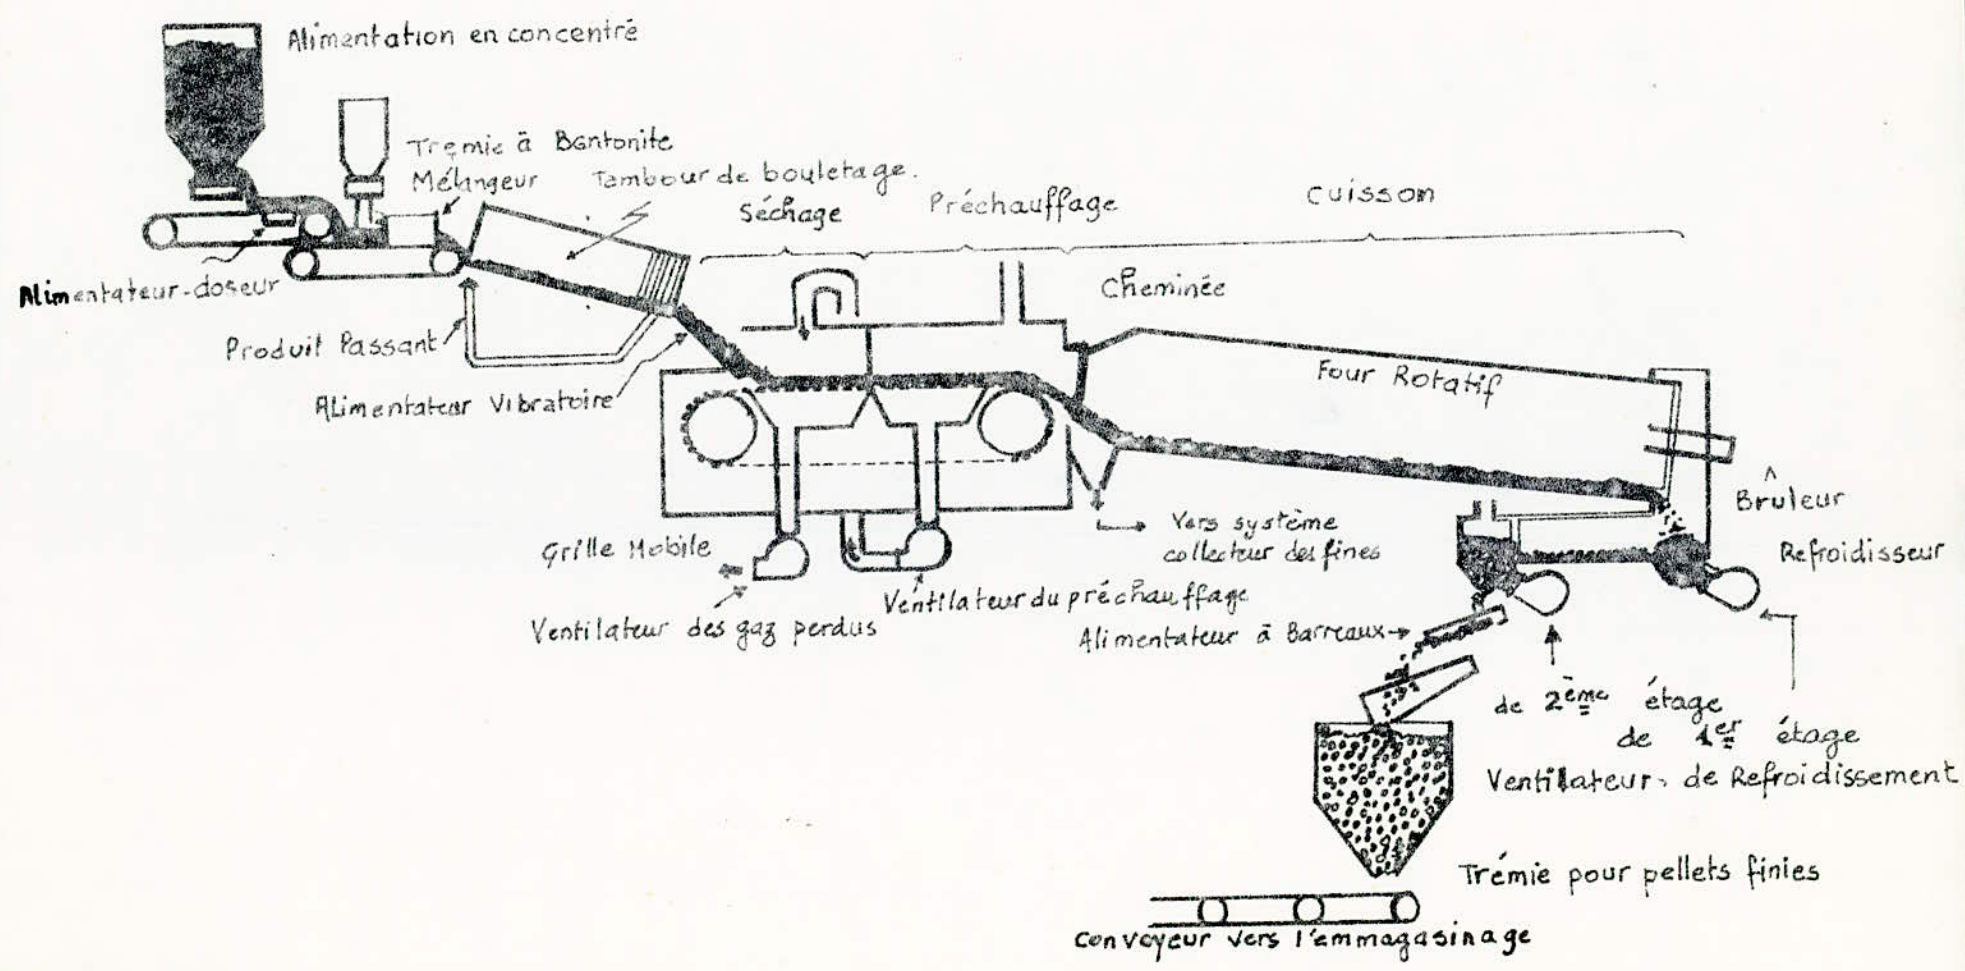 Alimentation en concentré
Tremie à Bentonite
Mélangeur
Tambour de bouletage.
Séchage
Préchauffage
Cuisson
Alimentateur-doseur
Cheminée
Produit Passant
Alimentateur Vibratoire
Four Rotatif
Bruleur
Vers système
collecteur des fines
Grille Mobile
Refroidisseur
Ventilateur du préchauffage
Ventilateur des gaz perdus
Alimentateur à Barreaux
de 2ème étage
de 1er étage
Ventilateur de Refroidissement
Trémie pour pellets finies
Convoyeur vers l'emmagasinage